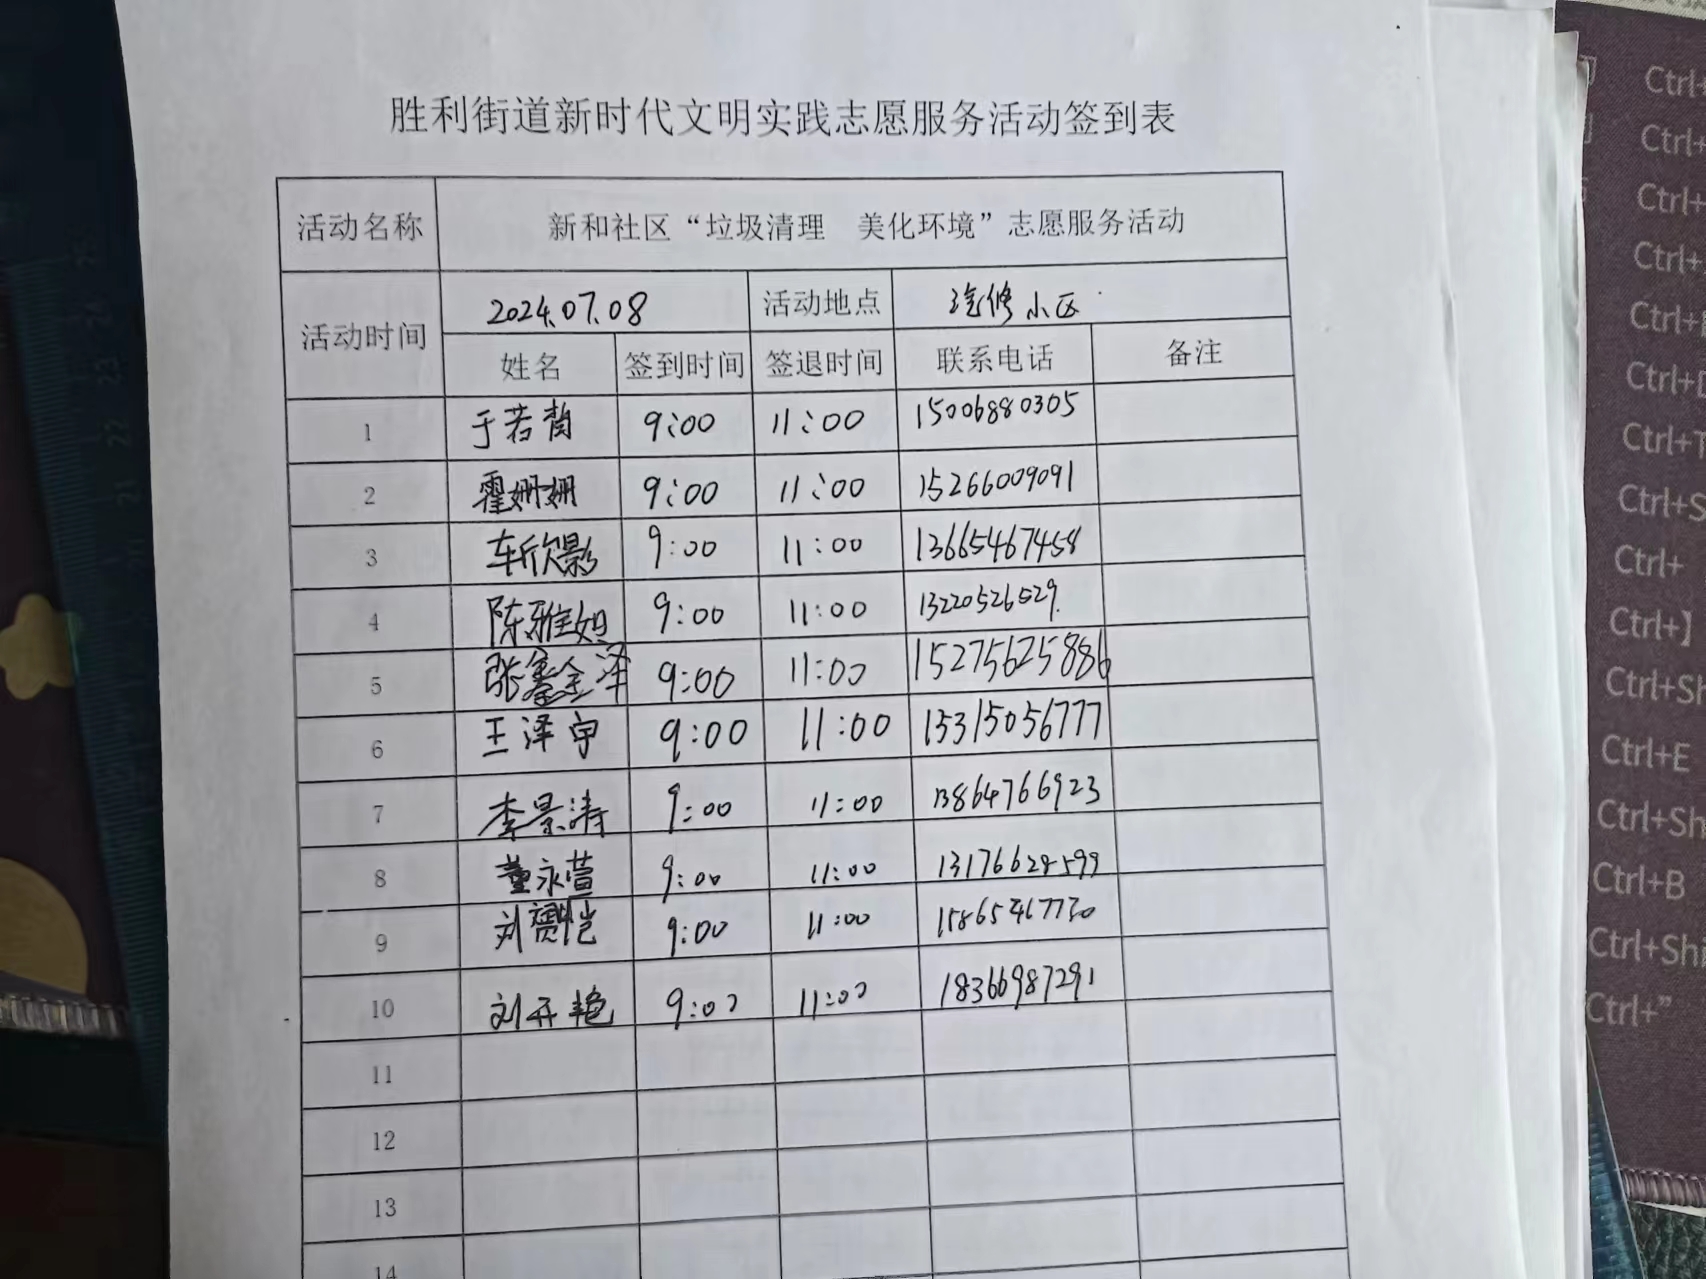 胜利街道新时代文明实践志愿服务活动签到表
活动名称 新和社区“垃圾清理 美化环境”志愿服务活动
活动时间 2024.07.08 活动地点 汽修小区
姓名 签到时间 签退时间 联系电话 备注
1 于若茜 9:00 11:00 15006880305
2 霍姗姗 9:00 11:00 15266009091
3 车欣影 9:00 11:00 13665467458
4 陈雅如 9:00 11:00 13220526529
5 张鑫泽 9:00 11:00 15275625886
6 王泽宇 9:00 11:00 15315056777
7 李景涛 9:00 11:00 13864766923
8 董永萱 9:00 11:00 13176628599
9 刘赟恺 9:00 11:00 15865467730
10 刘开艳 9:00 11:00 18366987291
11
12
13
14
Ctrl+
Ctrl+
Ctrl+
Ctrl+
Ctrl+
Ctrl+
Ctrl+T
Ctrl+S
Ctrl+
Ctrl+】
Ctrl+Sh
Ctrl+E
Ctrl+Sh
Ctrl+B
Ctrl+Shi
Ctrl+”